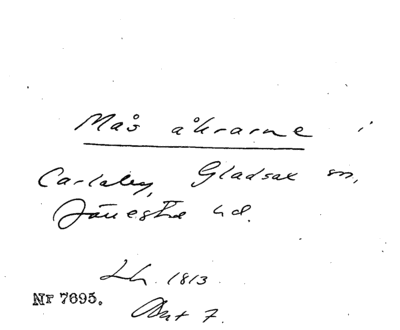 Mas åkrarne i
Carlaby, Gladsax sn,
Järrestad hd.
Lh. 1813
Nr 7695.
Akt 7.